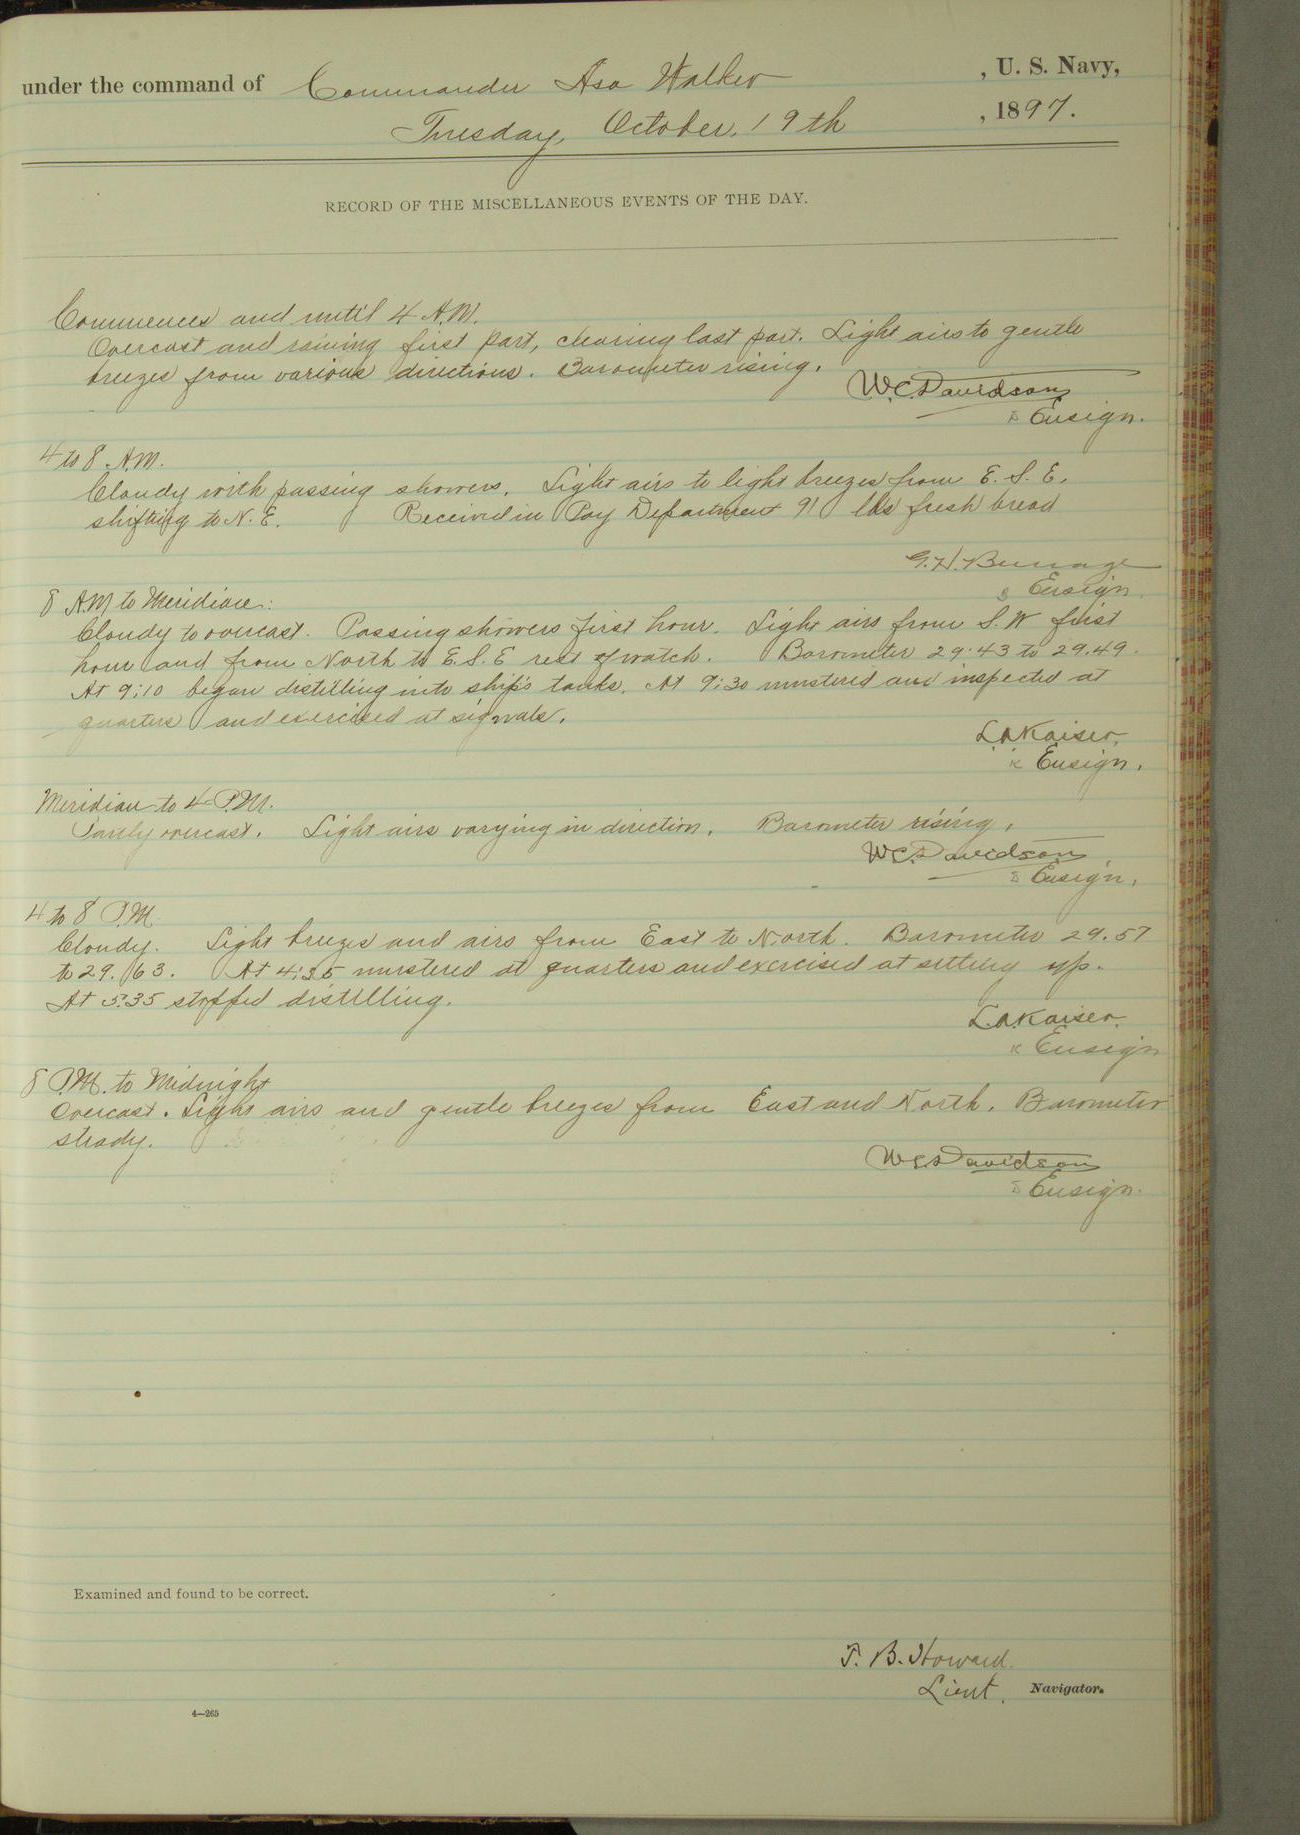 under the command of Commander Asa Walker, U. S. Navy,
Tuesday, October, 19th, 1897.
RECORD OF THE MISCELLANEOUS EVENTS OF THE DAY.
Commences and until 4 A.M.
Overcast and raining first part, clearing last part. Light airs to gentle
breezes from various directions. Barometer rising.
W.C. Davidson
Ensign.
4 to 8 A.M.
Cloudy with passing showers. Light airs to light breezes from E. S. E.
shifting to N. E. Received in Pay Department 91 lbs fresh bread
G. H. Burrage
Ensign.
8 A.M to Meridian:
Cloudy to overcast. Passing showers first hour. Light airs from S. W first
hour and from North to E. S. E rest of watch. Barometer 29.43 to 29.49.
At 9:10 began distilling into ship's tanks. At 9:30 mustered and inspected at
quarters and exercised at signals.
L.A. Kaiser,
Ensign.
Meridian to 4 P.M.
Partly overcast. Light airs varying in direction. Barometer rising.
W.C. Davidson
Ensign.
4 to 8 P.M.
Cloudy. Light breezes and airs from East to North. Barometer 29.57
to 29.63. At 4:35 mustered at quarters and exercised at setting up.
At 5:35 stopped distilling.
L.A. Kaiser.
Ensign
8 P.M. to Midnight
Overcast. Light airs and gentle breezes from East and North. Barometer
steady.
W.C. Davidson
Ensign.
Examined and found to be correct.
T. B. Howard.
Lieut. Navigator.
4—265